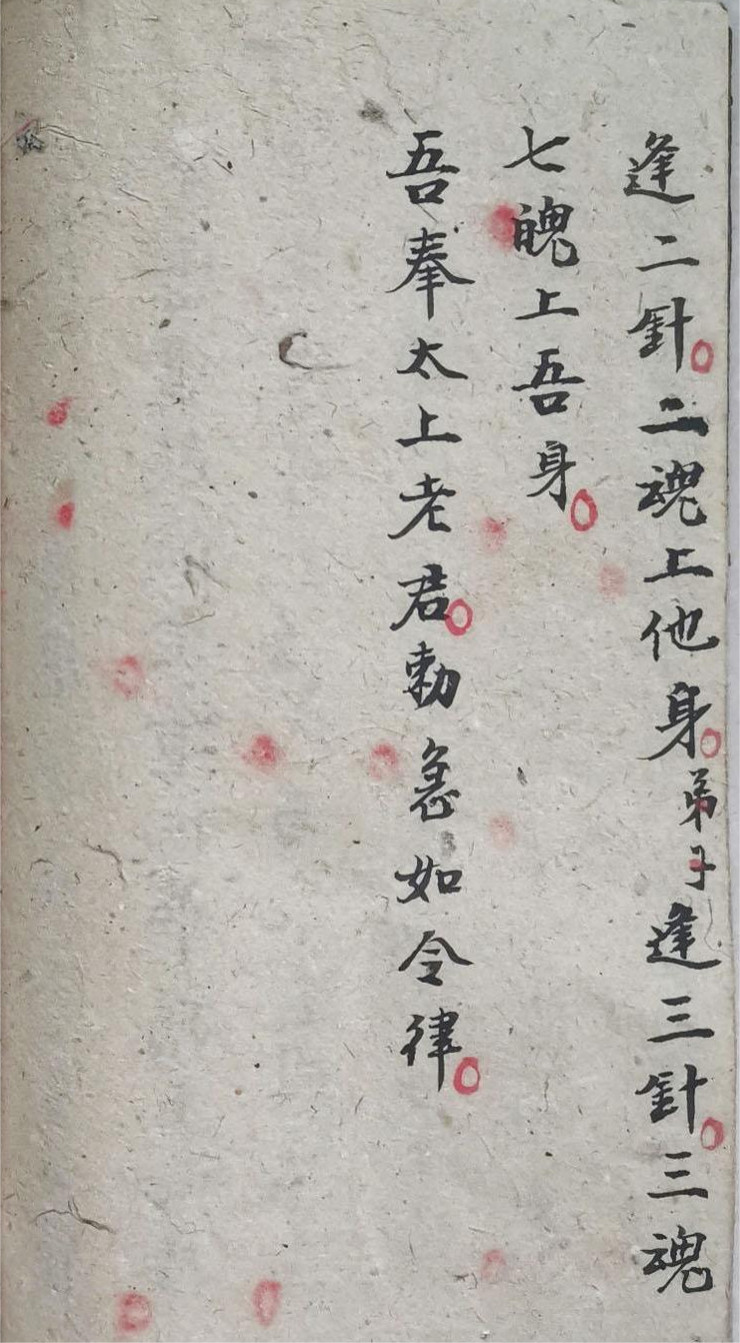 逢二針。二魂上他身。弟子逢三針。三魂
七魄上吾身。
吾奉太上老君。勅急如令律。